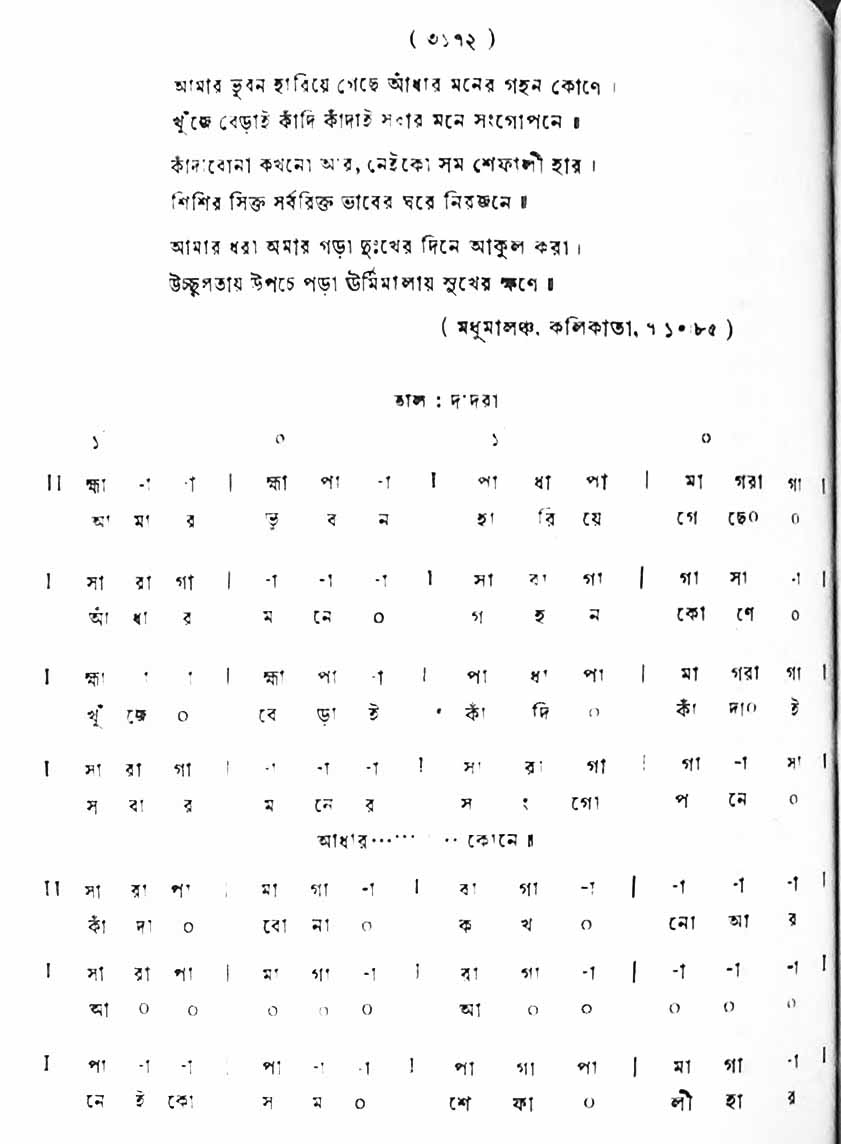 ( ৩১৭২ )
আমার ভুবন হারিয়ে গেছে আঁধার মনের গহন কোণে ।
খুঁজে বেড়াই কাঁদি কাঁদাই সবার মনে সংগোপনে ॥
কাঁদাবোনা কখনো আর, নেইকো সম শেফালী হার ।
শিশির সিক্ত সর্বরিক্ত ভাবের ঘরে নিরজনে ॥
আমার ধরা অমার গড়া দুঃখের দিনে আকুল করা ।
উচ্ছ্বলতায় উপচে পড়া ঊর্মিমালায় সুখের ক্ষণে ॥
( মধুমালঞ্চ, কলিকাতা, ৭ ১০ ৮৫ )
তাল : দাদরা
১ ০ ১ ০
II হ্মা -া -া | হ্মা পা -া I পা ধা পা | মা গরা গা |
আ মা র ভু ব ন হা রি য়ে গে ছে০ ০
I সা রা গা | -া -া -া I সা রা গা | গা সা -া |
আঁ ধা র ম নে ০ গ হ ন কো ণে ০
I হ্মা া া | হ্মা পা -া I পা ধা পা | মা গরা গা I
খুঁ জে ০ বে ড়া ই কাঁ দি ০ কাঁ দা০ ই
I সা রা গা | -া -া -া I সা রা গা | গা -া সা I
স বা র ম নে র স ং গো প নে ০
আধার········কোনে ॥
II সা রা পা | মা গা -া I রা গা -া | -া -া -া I
কাঁ দা ০ বো না ০ ক খ ০ নো আ র
I সা রা পা | মা গা -া I রা গা -া | -া -া -া I
আ ০ ০ ০ ০ ০ আ ০ ০ ০ ০ ০
I পা -া -া | পা -া -া I পা গা পা | মা গা -া I
নে ই কো স ম ০ শে ফা ০ লী হা র